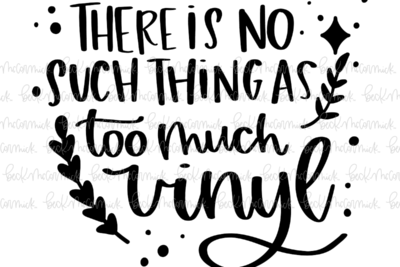 THERE IS NO
SUCH THING AS
too much
vinyl